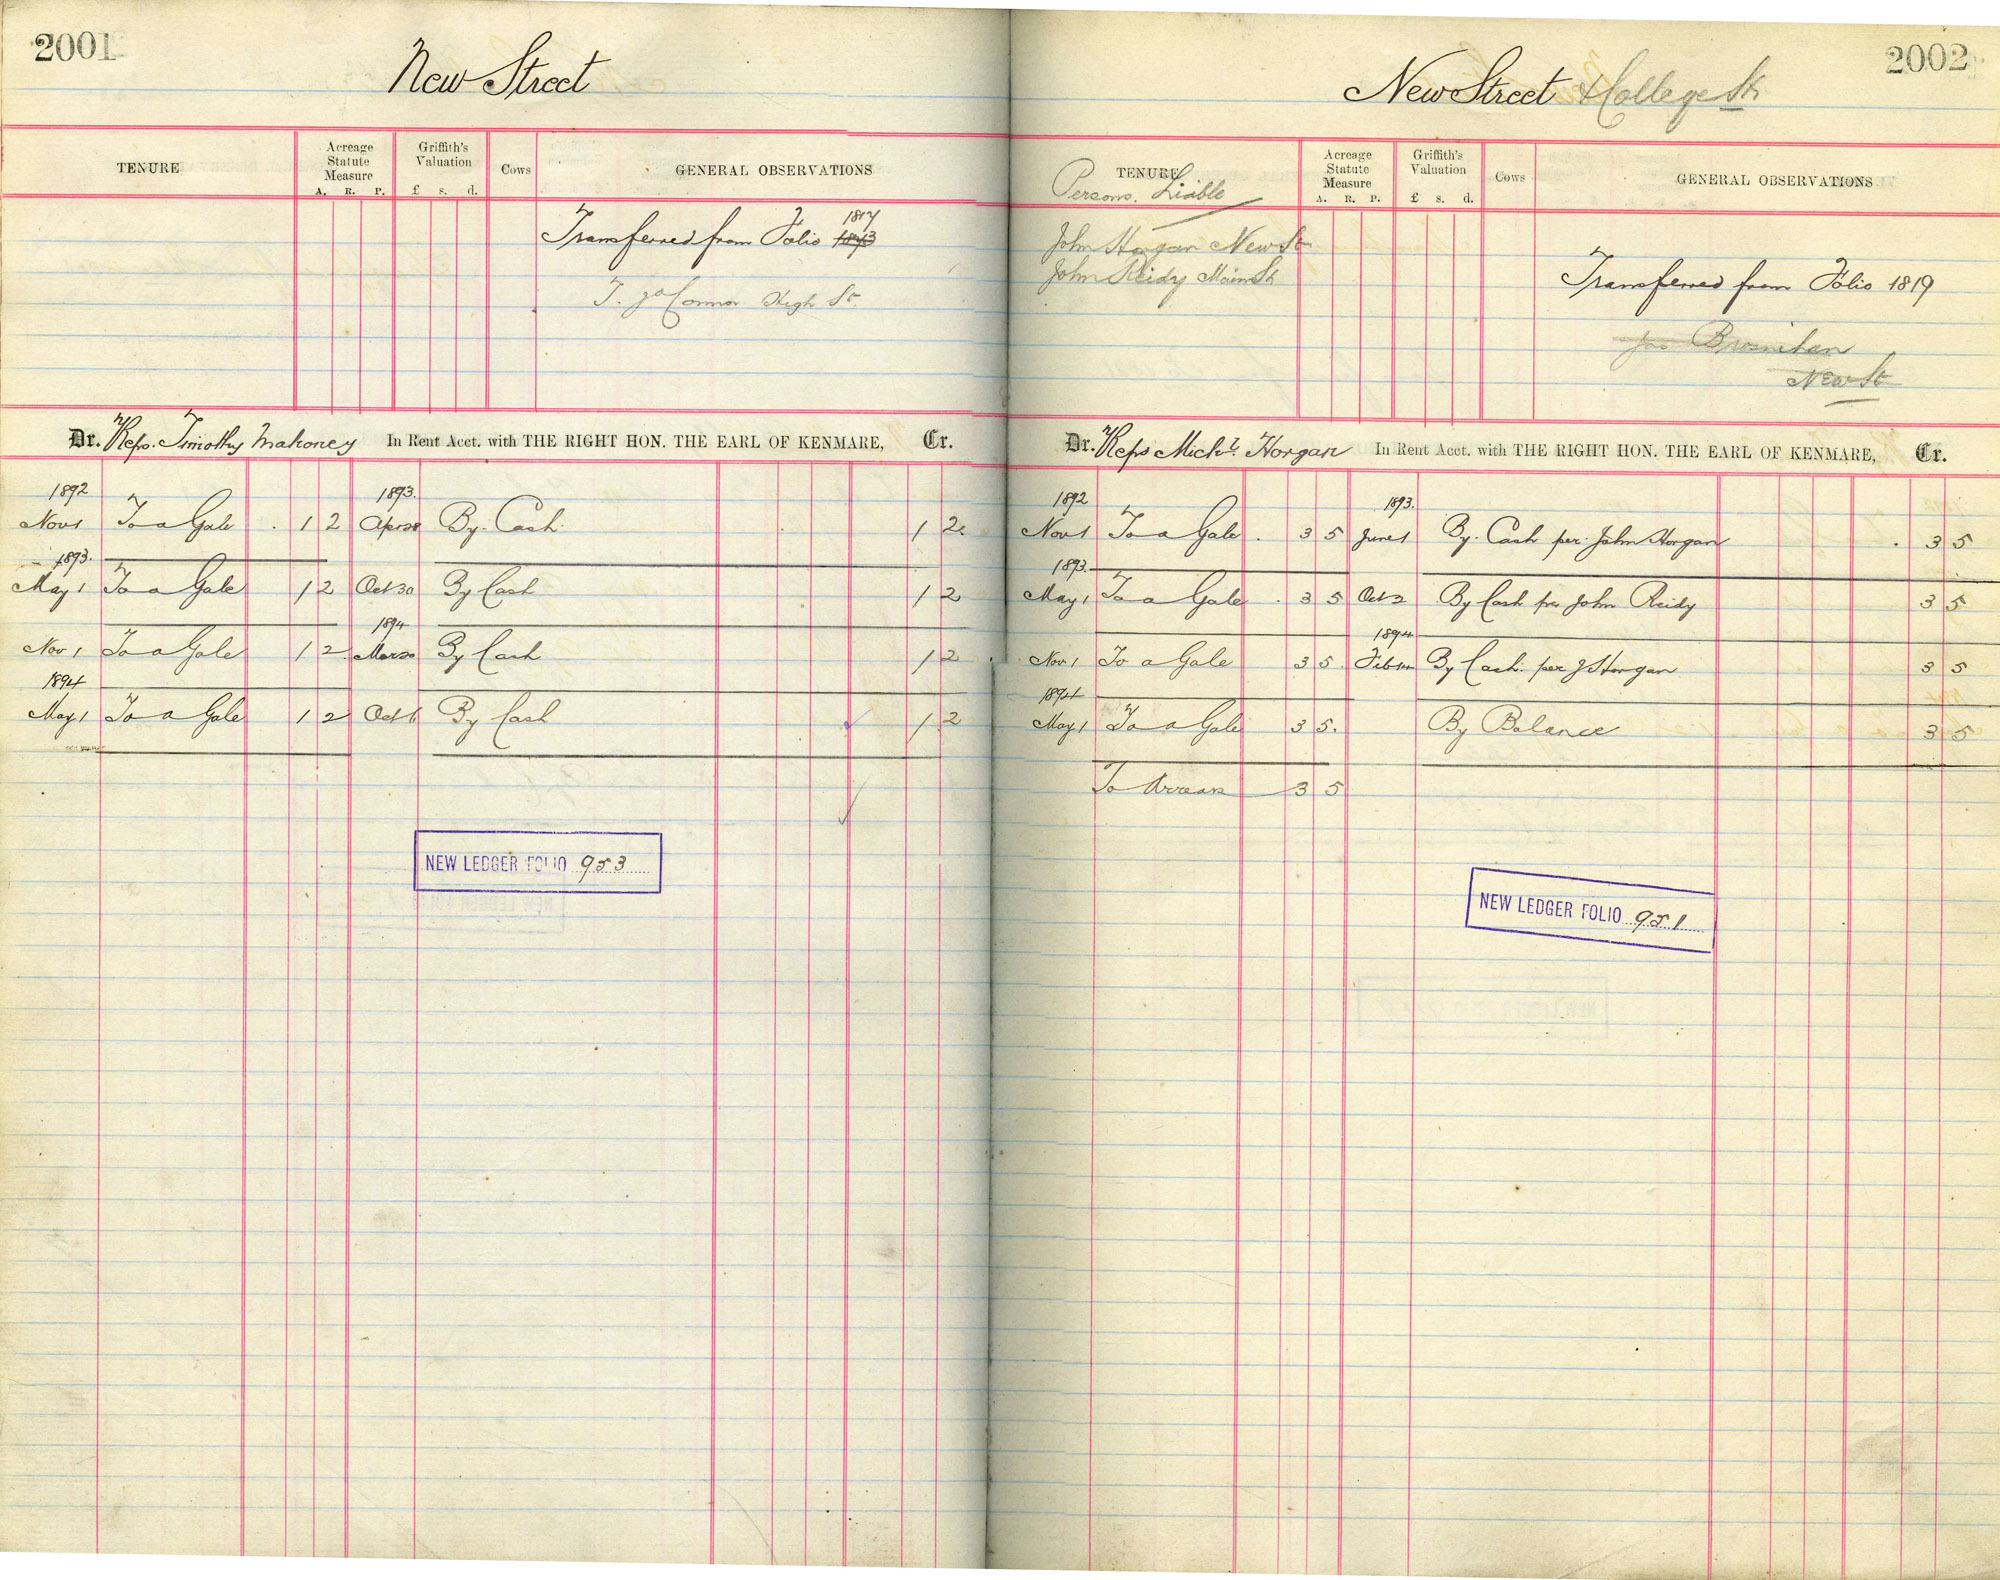 2001
New Street
TENURE
Acreage Statute Measure
A. R. P.
Griffith's Valuation
£ s. d.
Cows
GENERAL OBSERVATIONS
1817
Transferred from Folio 1843
T. J O'Connor High St.
Dr. Reps. Timothy Mahoney In Rent Acct. with THE RIGHT HON. THE EARL OF KENMARE, Cr.
1892 1893.
Nov 1 To a Gale . 1 2 Apr 28 By Cash 1 2.
1893.
May 1 To a Gale 1 2 Oct 30 By Cash 1 2
1894
Nov 1 To a Gale 1 2 Mar 20 By Cash 1 2
1894
May 1 To a Gale 1 2 Oct 6 By Cash 1 2
NEW LEDGER FOLIO 953
2002
New Street & College St.
TENURE
Persons Liable
Acreage Statute Measure
A. R. P.
Griffith's Valuation
£ s. d.
Cows
GENERAL OBSERVATIONS
John Horgan New St
John Reidy Main St
Transferred from Folio 1819
Jas Brosnihan
New St
Dr. Reps Michl. Horgan In Rent Acct. with THE RIGHT HON. THE EARL OF KENMARE, Cr.
1892 1893.
Nov 1 To a Gale . 3 5 June 1 By Cash per John Horgan . 3 5
1893.
May 1 To a Gale . 3 5 Oct 2 By Cash per John Reidy 3 5
1894
Nov 1 To a Gale 3 5. Feb By Cash per J Horgan 3 5
1894
May 1 To a Gale 3 5. By Balance 3 5
To Arrears 3 5
NEW LEDGER FOLIO 951